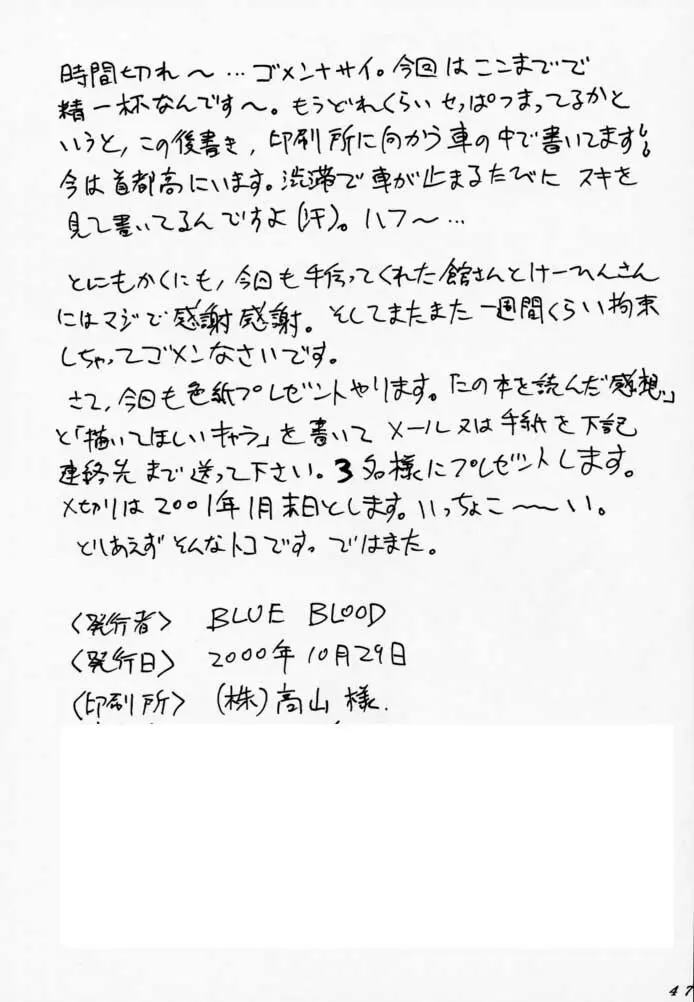 時間切れ〜…ゴメンナサイ。今回はここまでで
精一杯なんです〜。もうどれくらいセッぱつまってるかと
いうと，この後書き，印刷所に向かう車の中で書いてます!。
今は首都高にいます。渋滞で車が止まるたびに スキを
見て書いてるんですよ(汗)。ハフ〜…
とにもかくにも，今回も手伝ってくれた館さんとけーひんさん
にはマジで感謝感謝。そしてまたまた一週間くらい拘束
しちゃってゴメンなさいです。
さて，今回も色紙プレゼントやります。「この本を読んだ感想」
と「描いてほしいキャラ」を書いて メール又は手紙を下記
連絡先まで送って下さい。3名様にプレゼントします。
〆切りは2001年1月末日とします。いっちょこ〜い。
とりあえずそんなトコですっ ではまた。
〈発行者〉 BLUE BLOOD
〈発行日〉 2000年10月29日
〈印刷所〉 (株)高山様.
47